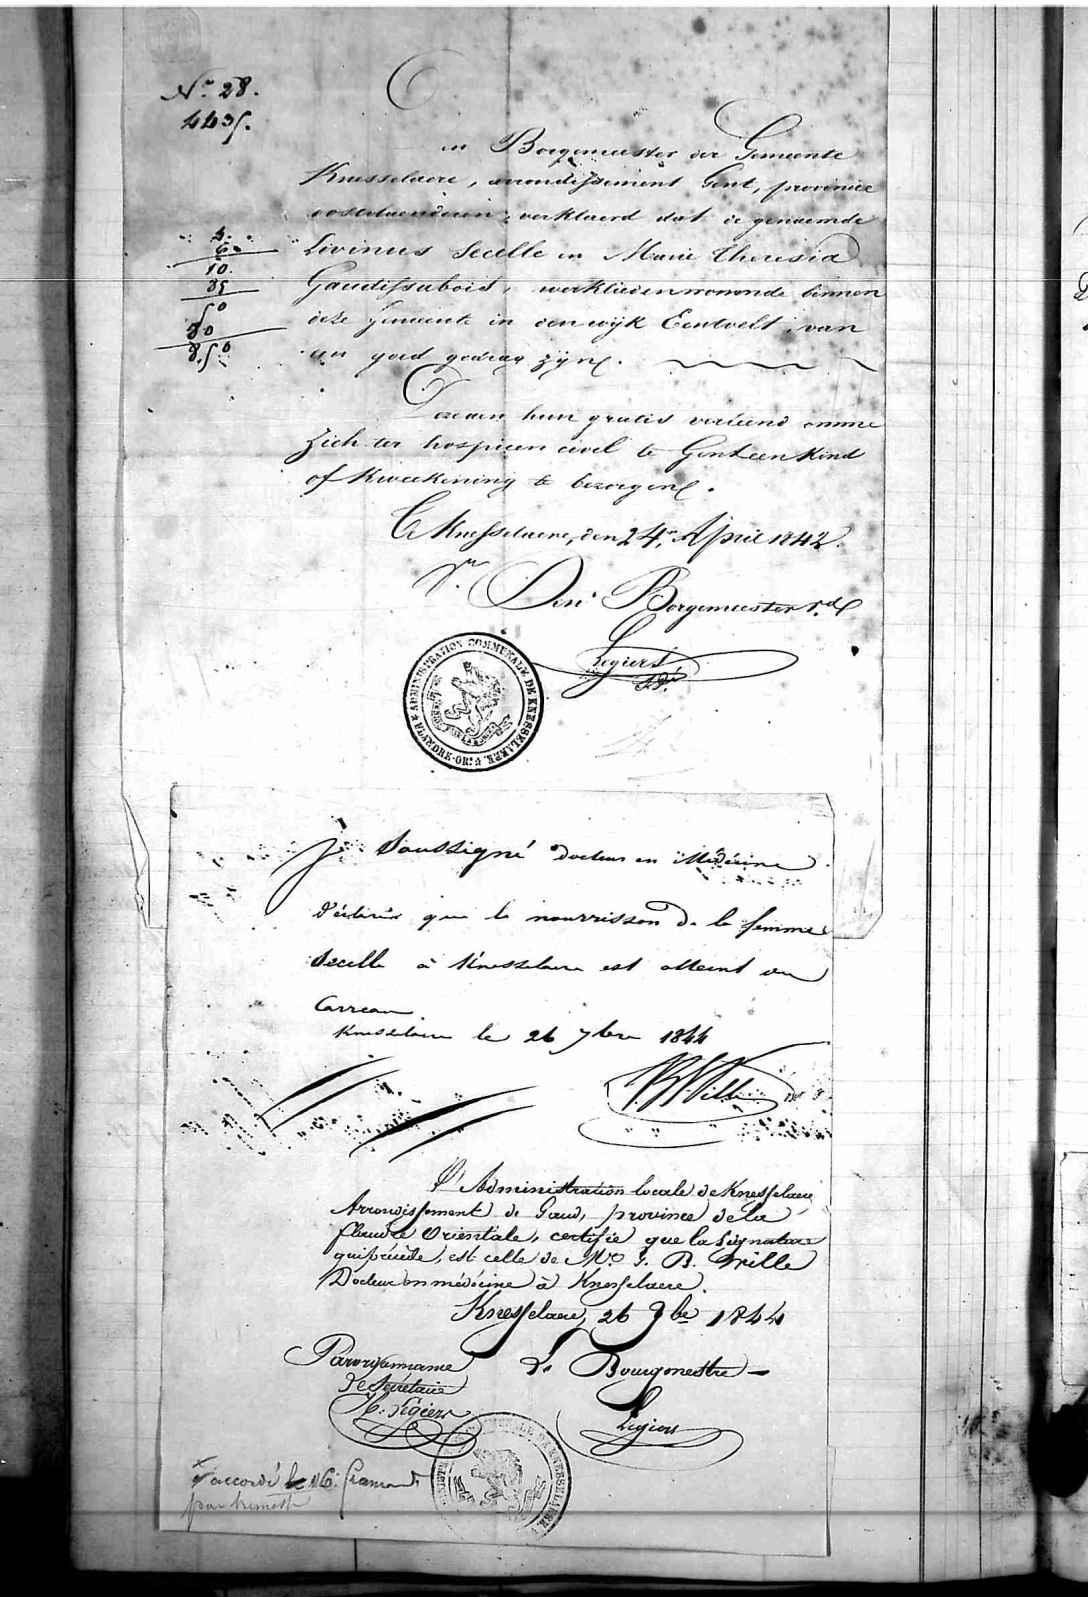 N.º 28.
443 f.
Den Borgemeester der Gemeente
Knesselaere, arrondissement Gent, provincie
oostvlaenderen, verklaerd dat de genaemde
Livinus Secelle en Marie Theresia
Gaudissabois, werklieden wonende binnen
deze gemeente in den wijk Eentvelt, van
een goed gedrag zijn.
5.
6
10.
35
50
80
8.50
Dezen hun gratis verleend omme
zich ter hospicen civil te Gent een Kind
of Kweekening te bezorgen.
Te Knesselaere, den 24. April 1842.
Den Borgemeester
Legiers
ADMINISTRATION COMMUNALE DE KNESSELAERE
Je Soussigné docteur en Médecine
déclare que le nourrisson de la femme
Secelle à Knesselaere est atteint du
Carreau.
Knesselaere le 26 7bre 1844
L'Administration locale de Knesselaere
Arrondissement de Gand, province de la
flandre Orientale, certifie que la Signature
qui précède, est celle de Mr. J. B. Wille
Docteur en médecine à Knesselaere.
Knesselaere, 26 7bre 1844
Par ordonnance Le Bourgmestre
Le Secrétaire
Legiers Legiers
accordé 16 francs
par trimestre